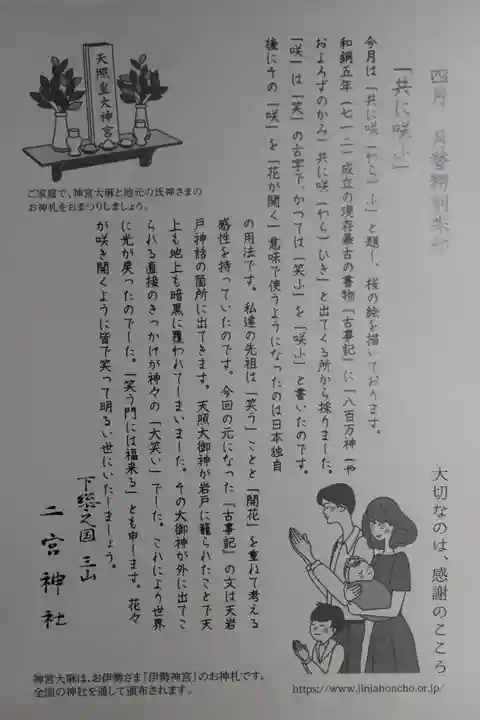 四月 月替特別朱印
「共に咲ふ」
今月は「共に咲（わら）ふ」と題し、桜の絵を描いております。
和銅五年（七一二）成立の現存最古の書物『古事記』に「八百万神（や
およろずのかみ）共に咲（わら）ひき」と出てくる所から採りました。
「咲」は「笑」の古字で、かつては「笑ふ」を「咲ふ」と書いたのです。
後にその「咲」を「花が開く」意味で使うようになったのは日本独自
の用法です。私達の先祖は「笑う」ことと「開花」を重ねて考える
感性を持っていたのです。今回の元になった『古事記』の文は天岩
戸神話の箇所に出てきます。天照大御神が岩戸に籠られたことで天
上も地上も暗黒に覆われてしまいました。その大御神が外に出てこ
られる直接のきっかけが神々の「大笑い」でした。これにより世界
に光が戻ったのでした。「笑う門には福来る」とも申します。花々
が咲き開くように皆で笑って明るい世にいたしましょう。
下総之国 三山
二宮神社
天照皇大神宮
ご家庭で、神宮大麻と地元の氏神さまの
お神札をおまつりしましょう。
大切なのは、感謝のこころ
神宮大麻は、お伊勢さま「伊勢神宮」のお神札です。
全国の神社を通して頒布されます。
https://www.jinjahoncho.or.jp/